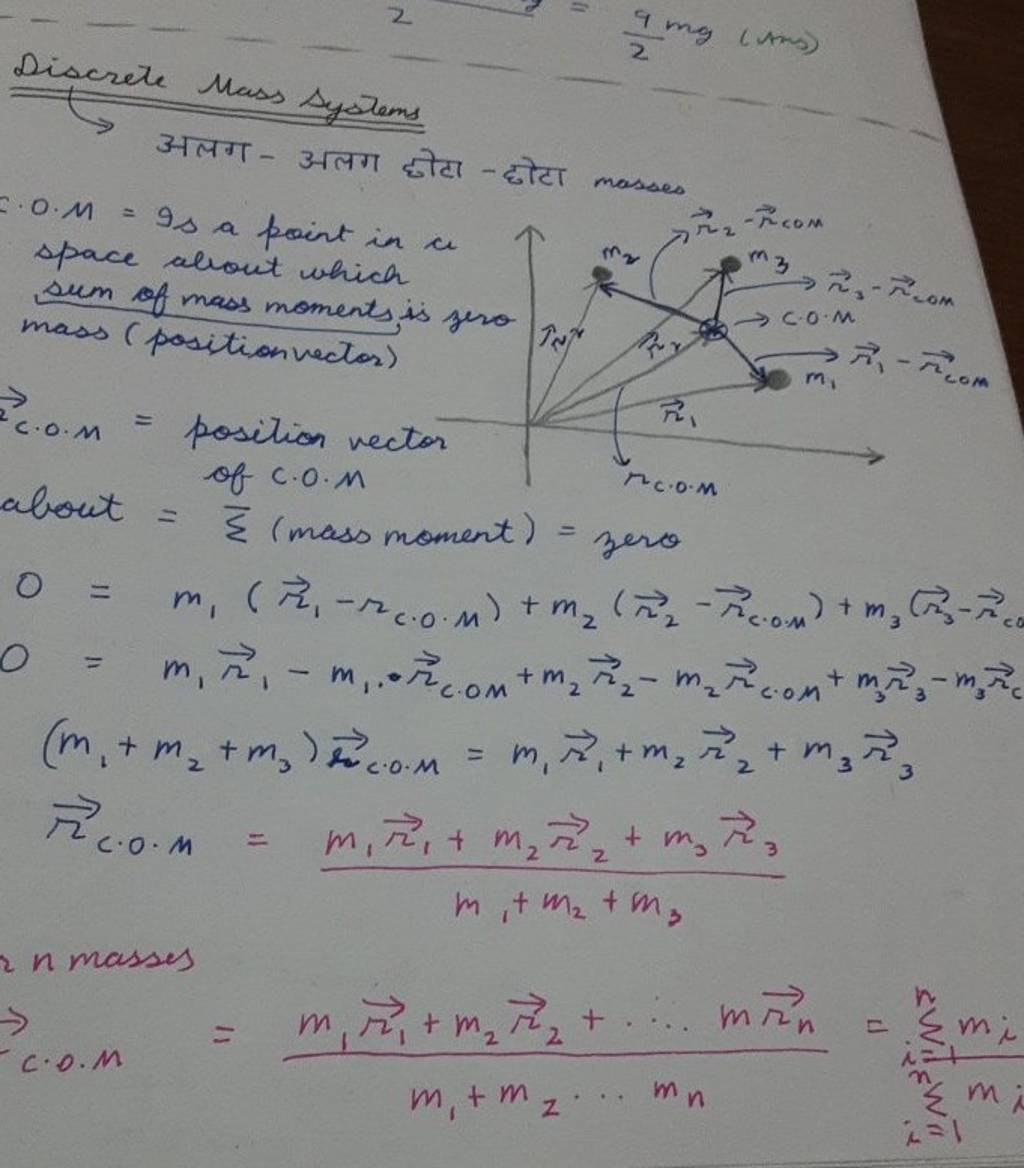 2 = 9/2 mg (Ans)
Discrete Mass Systems
अलग - अलग छोटा - छोटा masses
C.O.M = Is a point in a
space about which
sum of mass moments, is zero
mass (position vector)
m₂
r⃗₂ - r⃗COM
m₃
r⃗₃ - r⃗COM
→ C.O.M
r⃗₁ - r⃗COM
m₁
r⃗₁
r C.O.M
r⃗ C.O.M = position vector
of C.O.M
about = Σ (mass moment) = zero
0 = m₁ (r⃗₁ - r C.O.M) + m₂ (r⃗₂ - r⃗ C.O.M) + m₃ (r⃗₃ - r⃗ CO
0 = m₁ r⃗₁ - m₁. r⃗ C.OM + m₂ r⃗₂ - m₂ r⃗ C.OM + m₃ r⃗₃ - m₃ r⃗ C
(m₁ + m₂ + m₃) r⃗ C.O.M = m₁ r⃗₁ + m₂ r⃗₂ + m₃ r⃗₃
r⃗ C.O.M = m₁ r⃗₁ + m₂ r⃗₂ + m₃ r⃗₃
m₁ + m₂ + m₃
r n masses
C.O.M = m₁ r⃗₁ + m₂ r⃗₂ + .... m r⃗n = n Σ i=1 mi
m₁ + m₂ ... mn n Σ i=1 mi